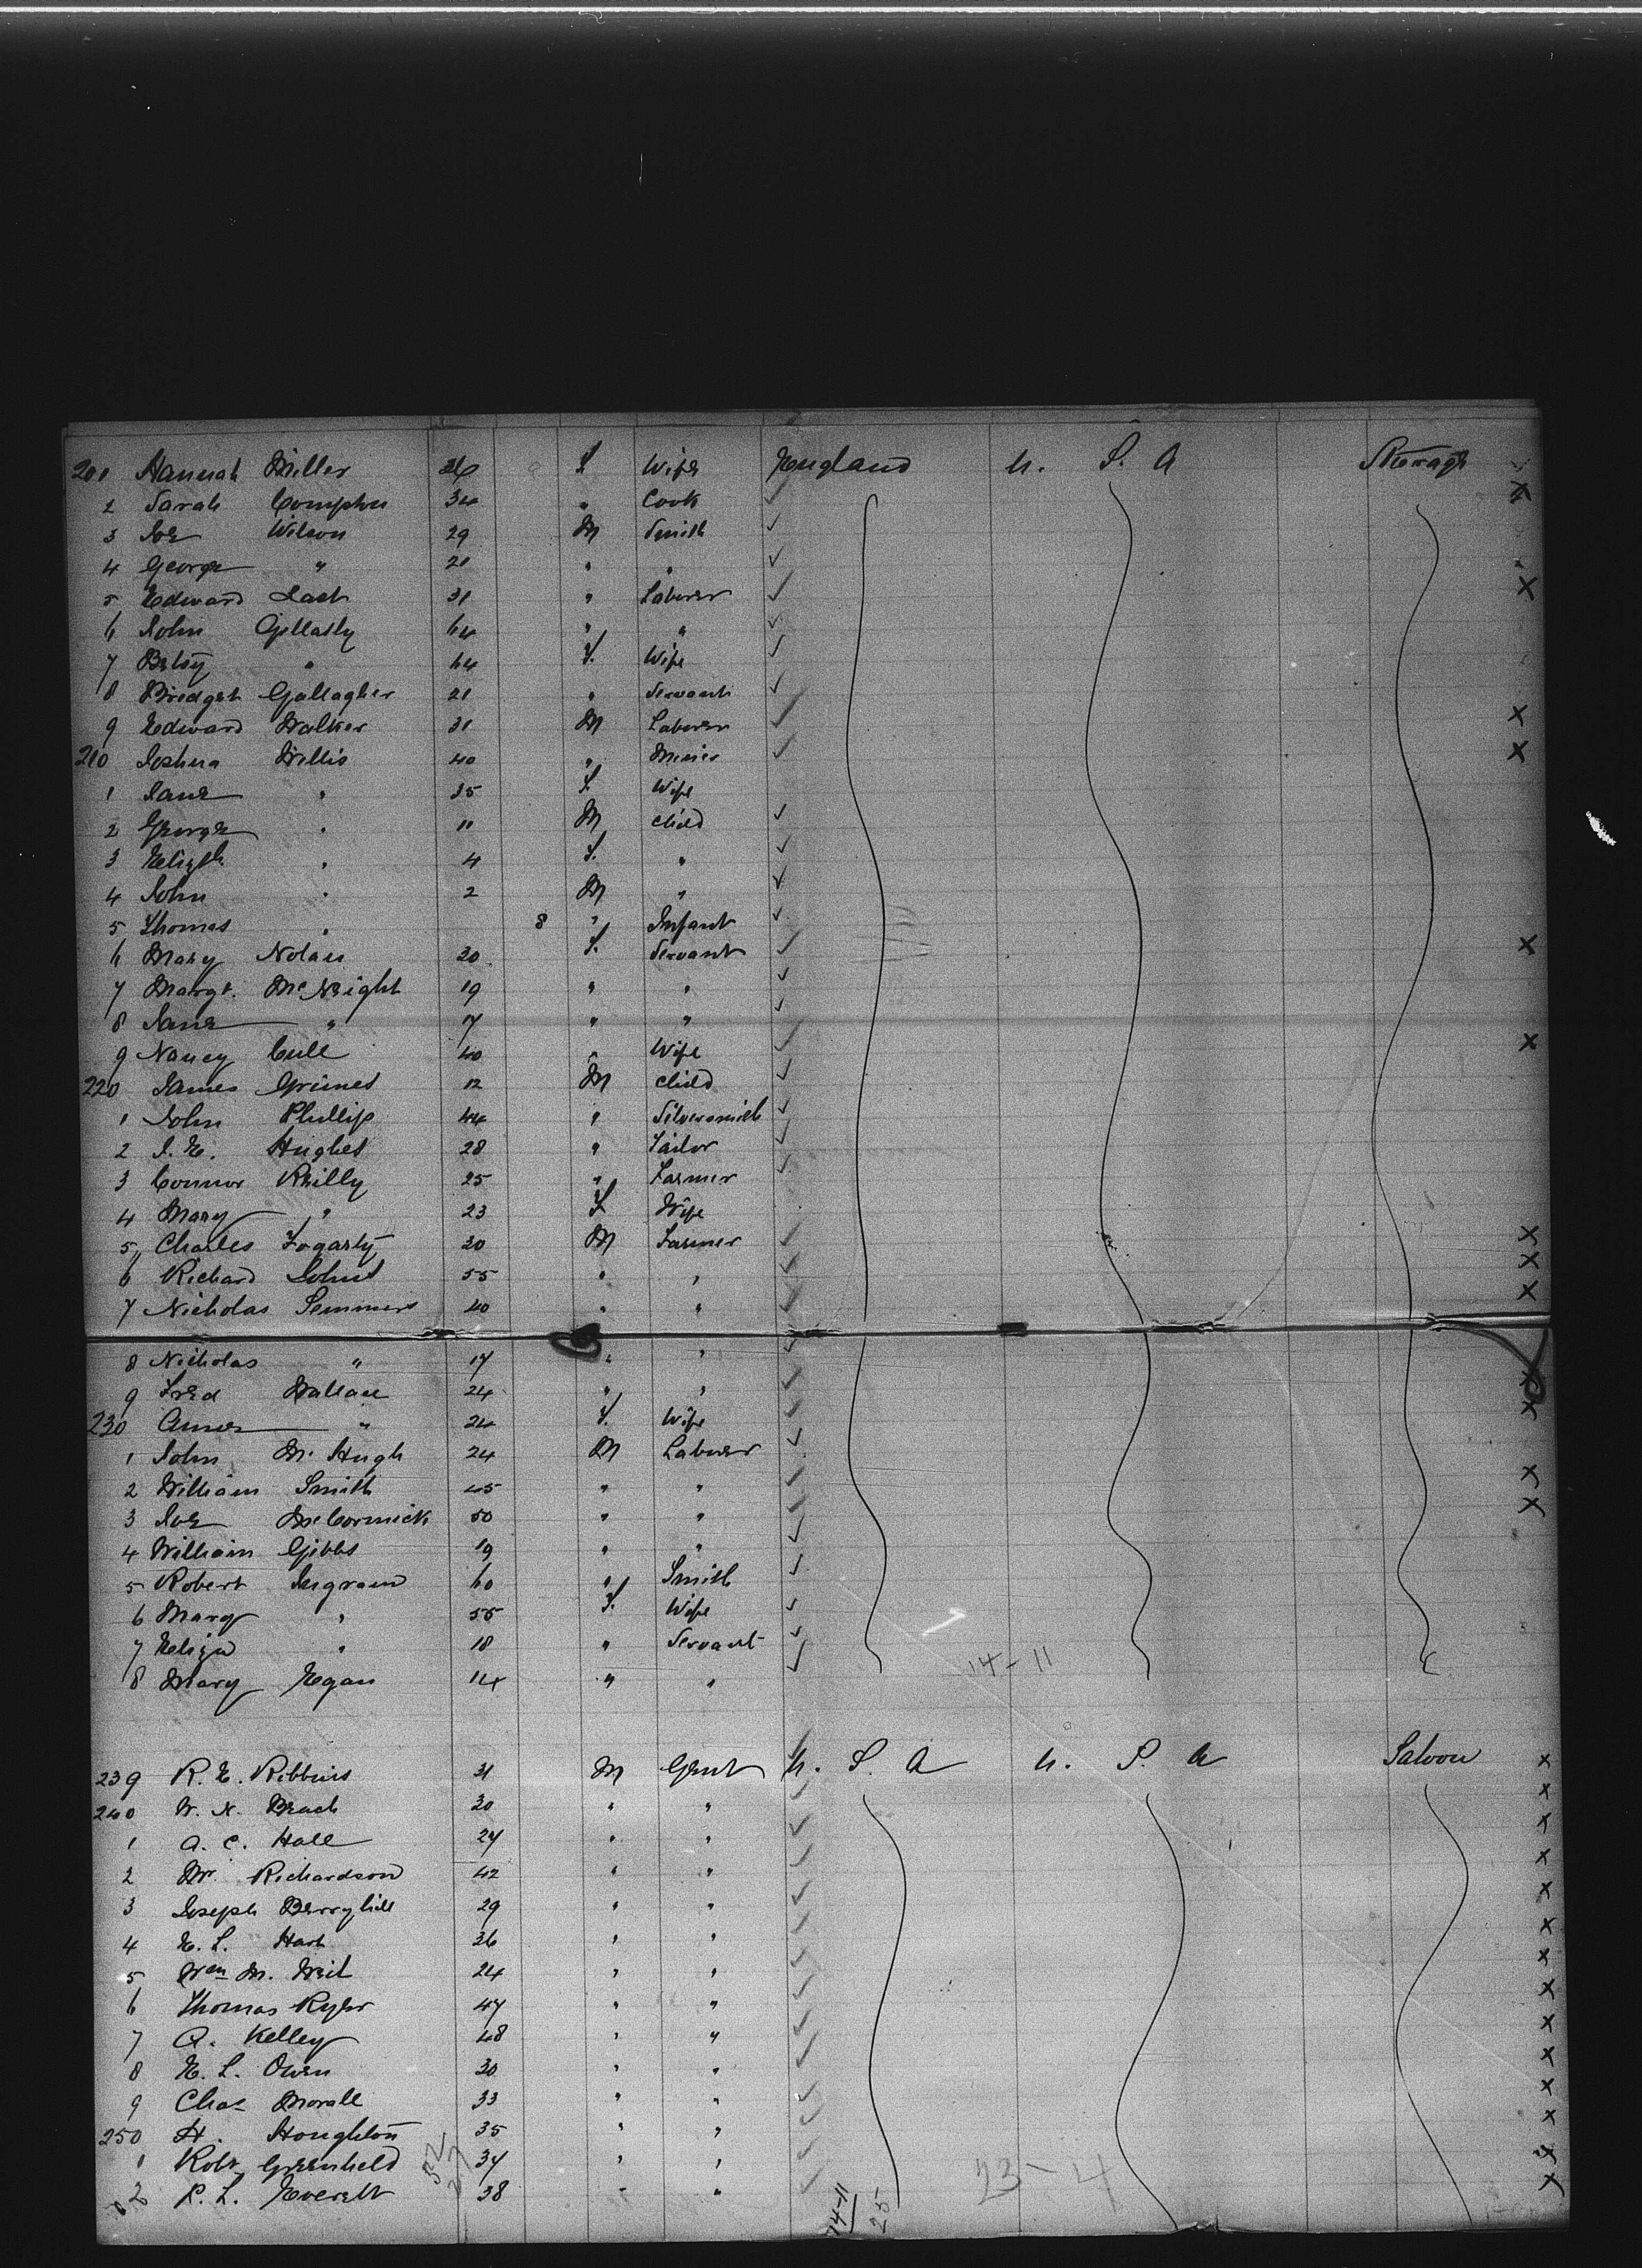 201 Hannah Miller 26 F Wife England U. S. A Steerage
2 Sarah Compton 34 " Cook
3 Joe Wilson 29 M Smith
4 George " 21 " "
5 Edward 31 " Laborer
6 John Gillatly 64 " "
7 Betsy " 64 F. Wife
8 Bridget Gallagher 21 " Servant
9 Edward Walker 31 M Laborer
210 Joshua Willis 40 " Miner
1 Jane " 35 F. Wife
2 George " 11 M Child
3 Elizth. " 4 F. "
4 John " 2 M "
5 Thomas " 8 " Infant
6 Mary Nolan 20 F. Servant
7 Margt. McNeight 19 " "
8 Jane " 17 " "
9 Nancy Cull 40 " Wife
220 James Grimes 12 M Child
1 John Phillip 44 " Silversmith
2 J. E. Hughes 28 " Tailor
3 Connor Reilly 25 " Farmer
4 Mary " 23 F Wife
5 Charles Fogarty 30 M Farmer
6 Richard Johns 55 " "
7 Nicholas Semmens 40 " "
8 Nicholas " 17 " "
9 Fred Wallace 24 " "
230 Annie " 24 F. Wife
1 John McHugh 24 M Laborer
2 William Smith 45 " "
3 Joe McCormick 50 " "
4 William Gibbs 19 " "
5 Robert Ingram 60 " Smith
6 Mary " 55 F. Wife
7 Eliza " 18 " Servant
8 Mary Egan 14 " "
14-11
239 R. E. Robbins 31 M Gent U. S. A U. S. A Saloon
240 W. N. Beach 30 " "
1 A. C. Hall 27 " "
2 Mr. Richardson 42 " "
3 Joseph Berryhill 29 " "
4 E. L. Hart 36 " "
5 Wm M. Weil 24 " "
6 Thomas Ryder 47 " "
7 A. Kelley 48 " "
8 E. L. Owen 30 " "
9 Chas Morall 33 " "
250 H. Houghton 35 " "
1 Robt Greenheld 34 " "
2 R. L. Everett 38 " "
23-4
14-11
25